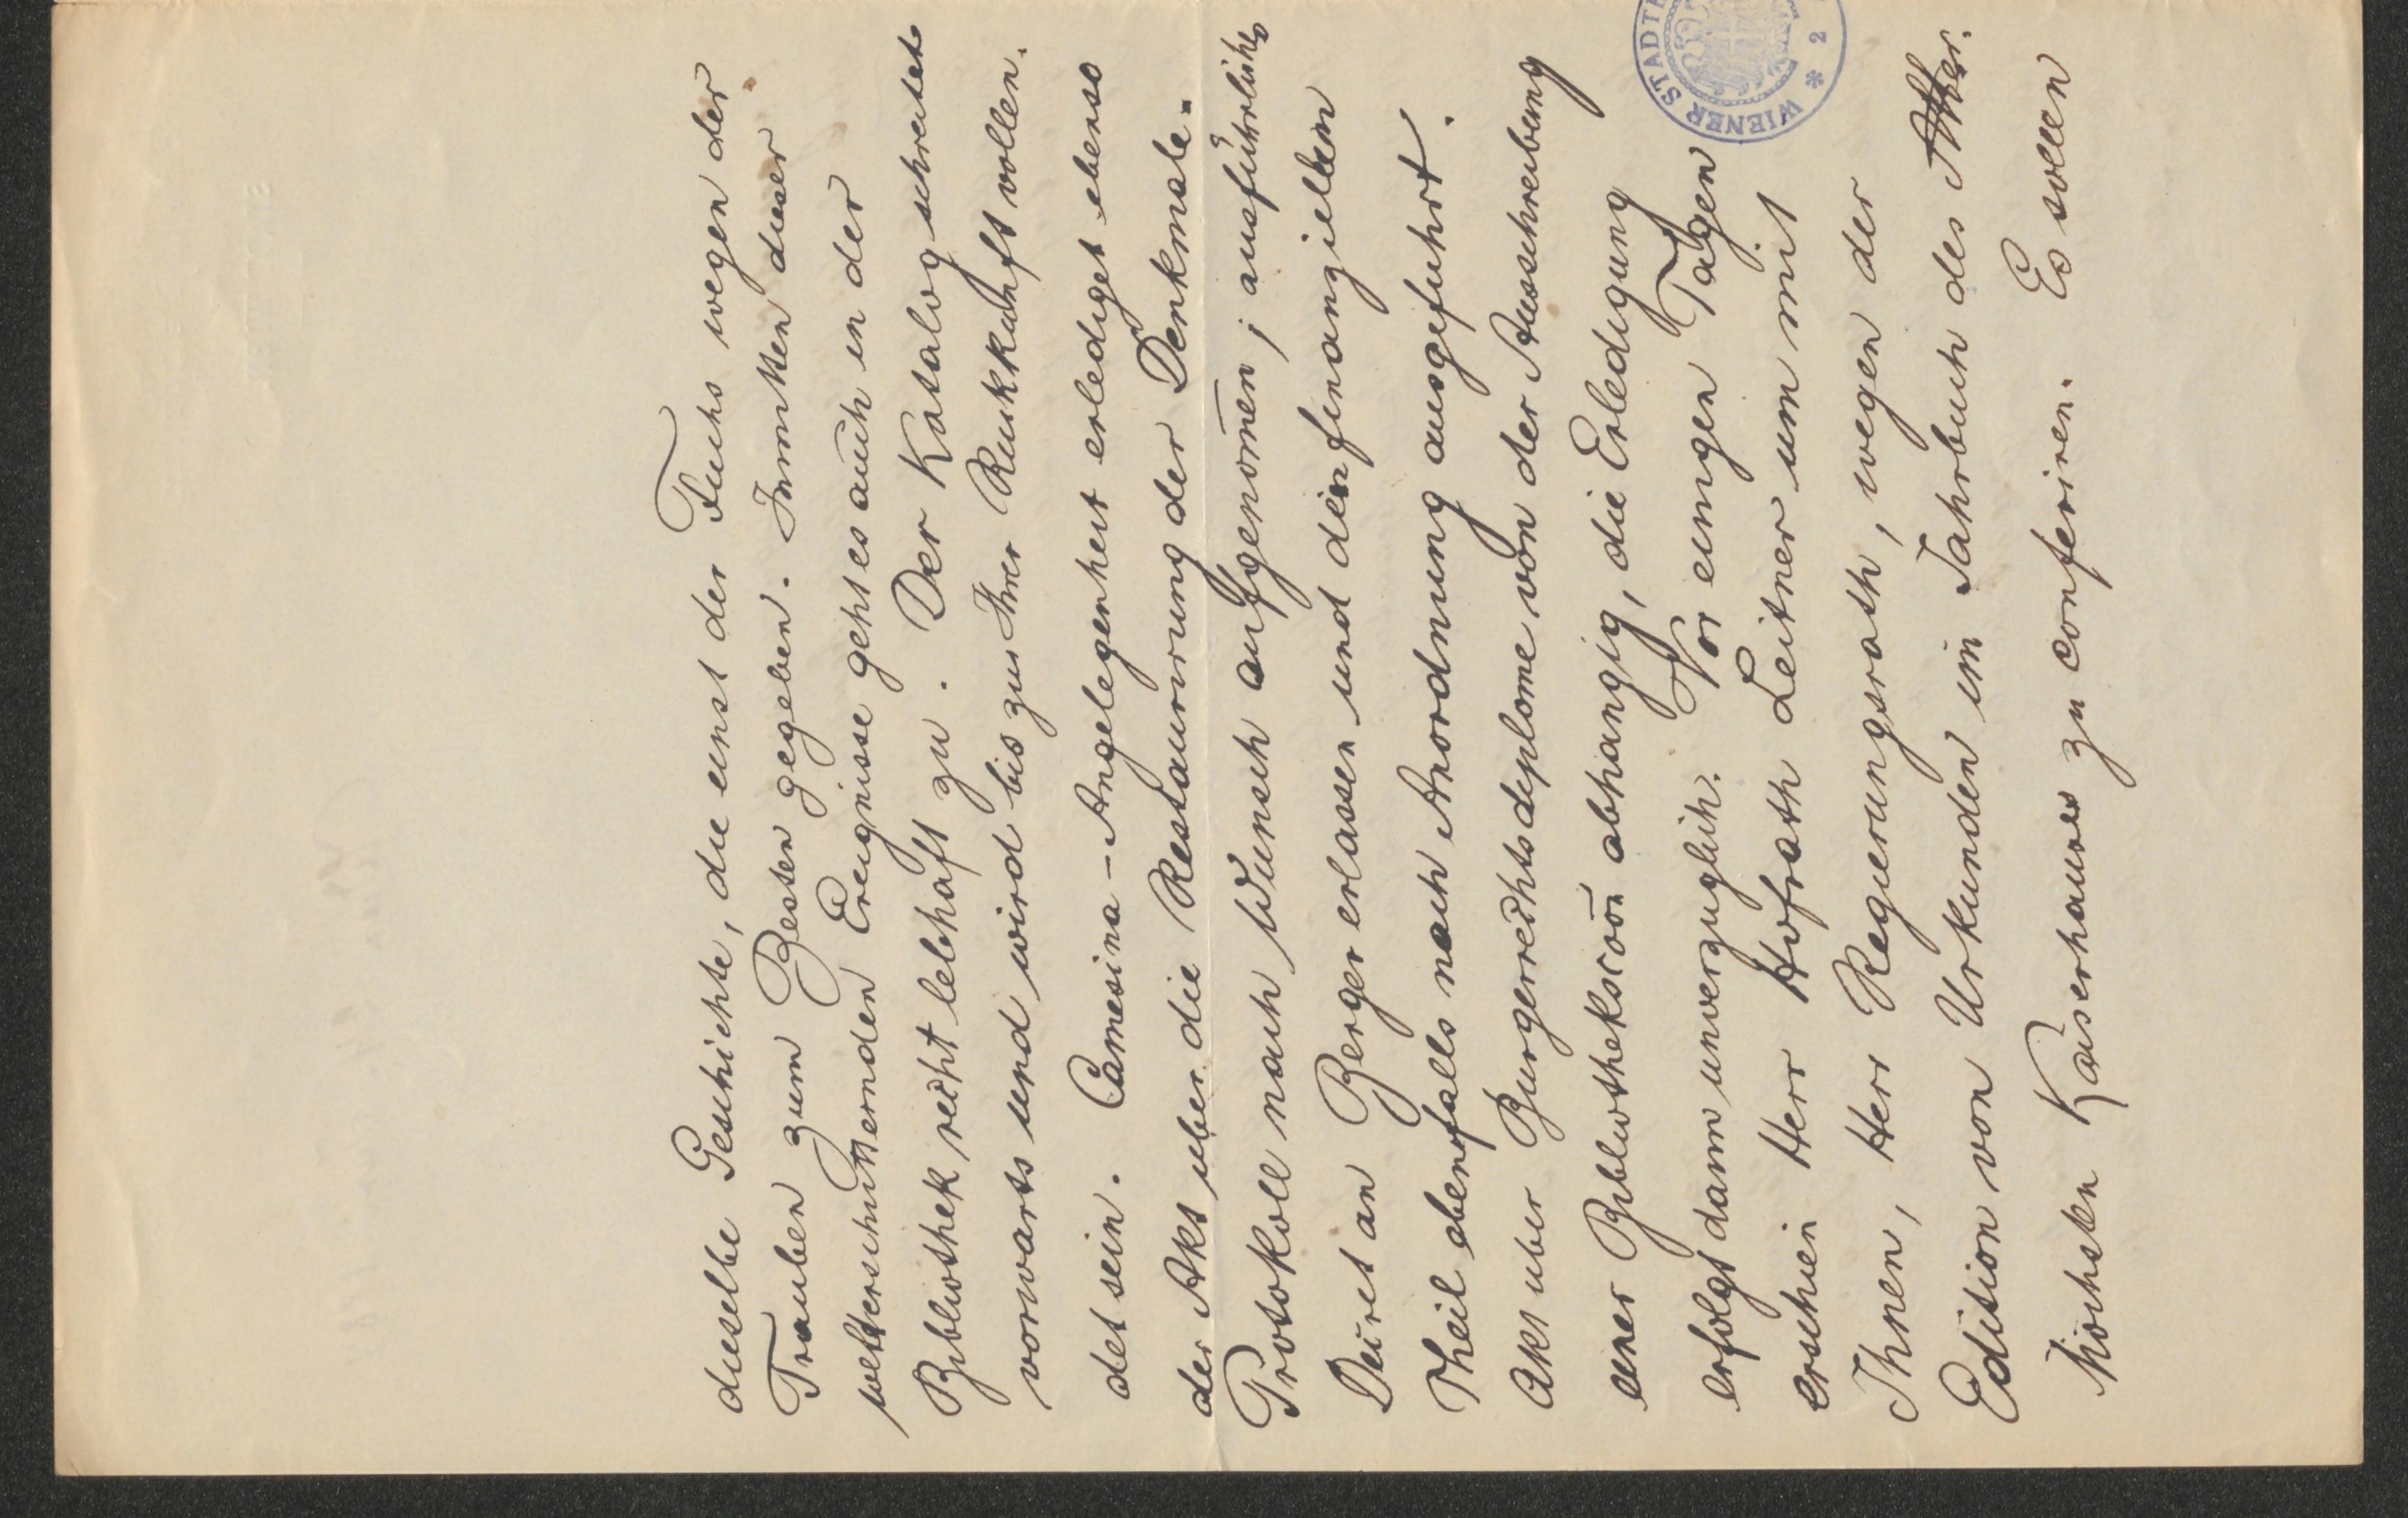 dieselbe Geschichte, die einst der Fuchs wegen der
Trauben zum Besten gegeben. Inmitten dieser
welterschütternden Ereignisse geht es auch in der
Bibliothek recht lebhaft zu. Der Katalog schreitet
vorwärts und wird bis zur Ihrer Rückkunft vollen.
det sein. Camesina-Angelegenheit erlediget ebenso
der Akt über die Restaurirung der Denkmale.
Protokoll nach Wunsch aufgenom̄en; ausführliches
Decret an Berger erlassen und den finanziellen
Theil ebenfalls nach Anordnung ausgeführt.
Akt über Bürgerrechtsdiplome von der Ausschreibung
einer Bibliothekscōon abhängig, die Erledigung
erfolgt dann unverzüglich. Vor einigen Tagen
erschien Herr Hofrath Leitner um mit
Ihnen, Herr Regierungsrath, wegen der
Edition von Urkunden im Jahrbuch des Aller.
höchsten Kaiserhauses zu conferiren. Es sollen
WIENER STADT
* 2